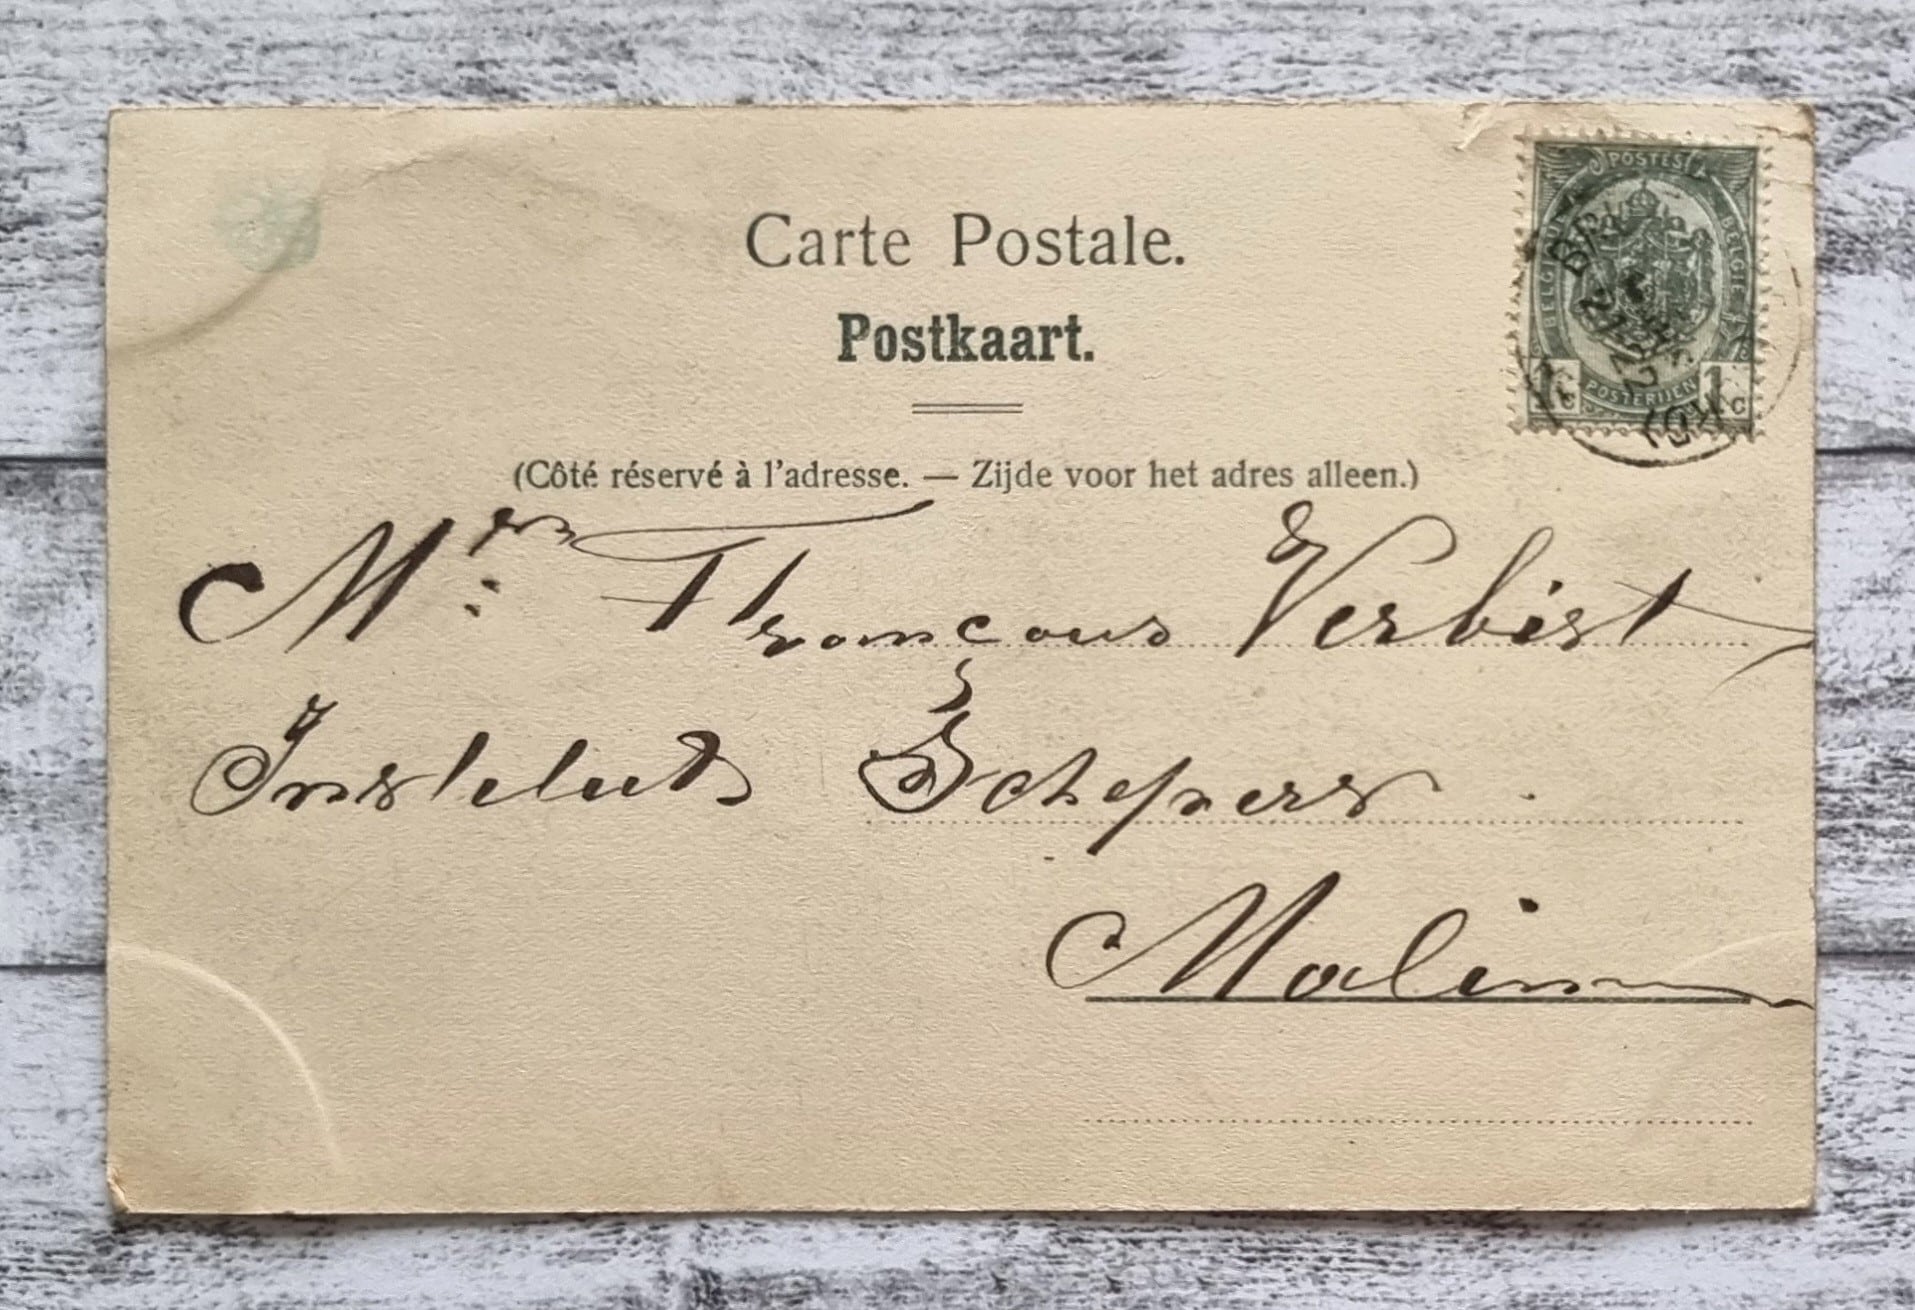 Carte Postale.
Postkaart.
(Côté réservé à l'adresse. — Zijde voor het adres alleen.)
POSTES
BELGIQUE BELGIE
1c POSTERIJEN 1c
Mr François Verbist
Institut Schepers
Malines